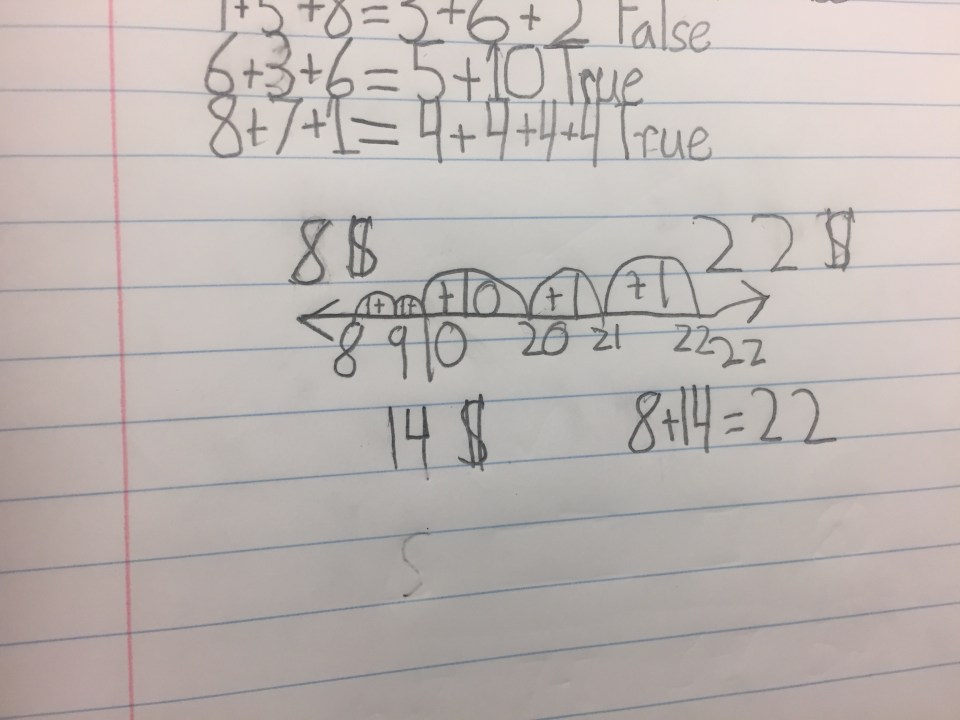 1+5+8=5+6+2 False
6+3+6=5+10 True
8+7+1=4+4+4+4 True
8$ 22$
1+ 1+ +10 +1 +1
8 9 10 20 21 22 22
14 $ 8+14=22